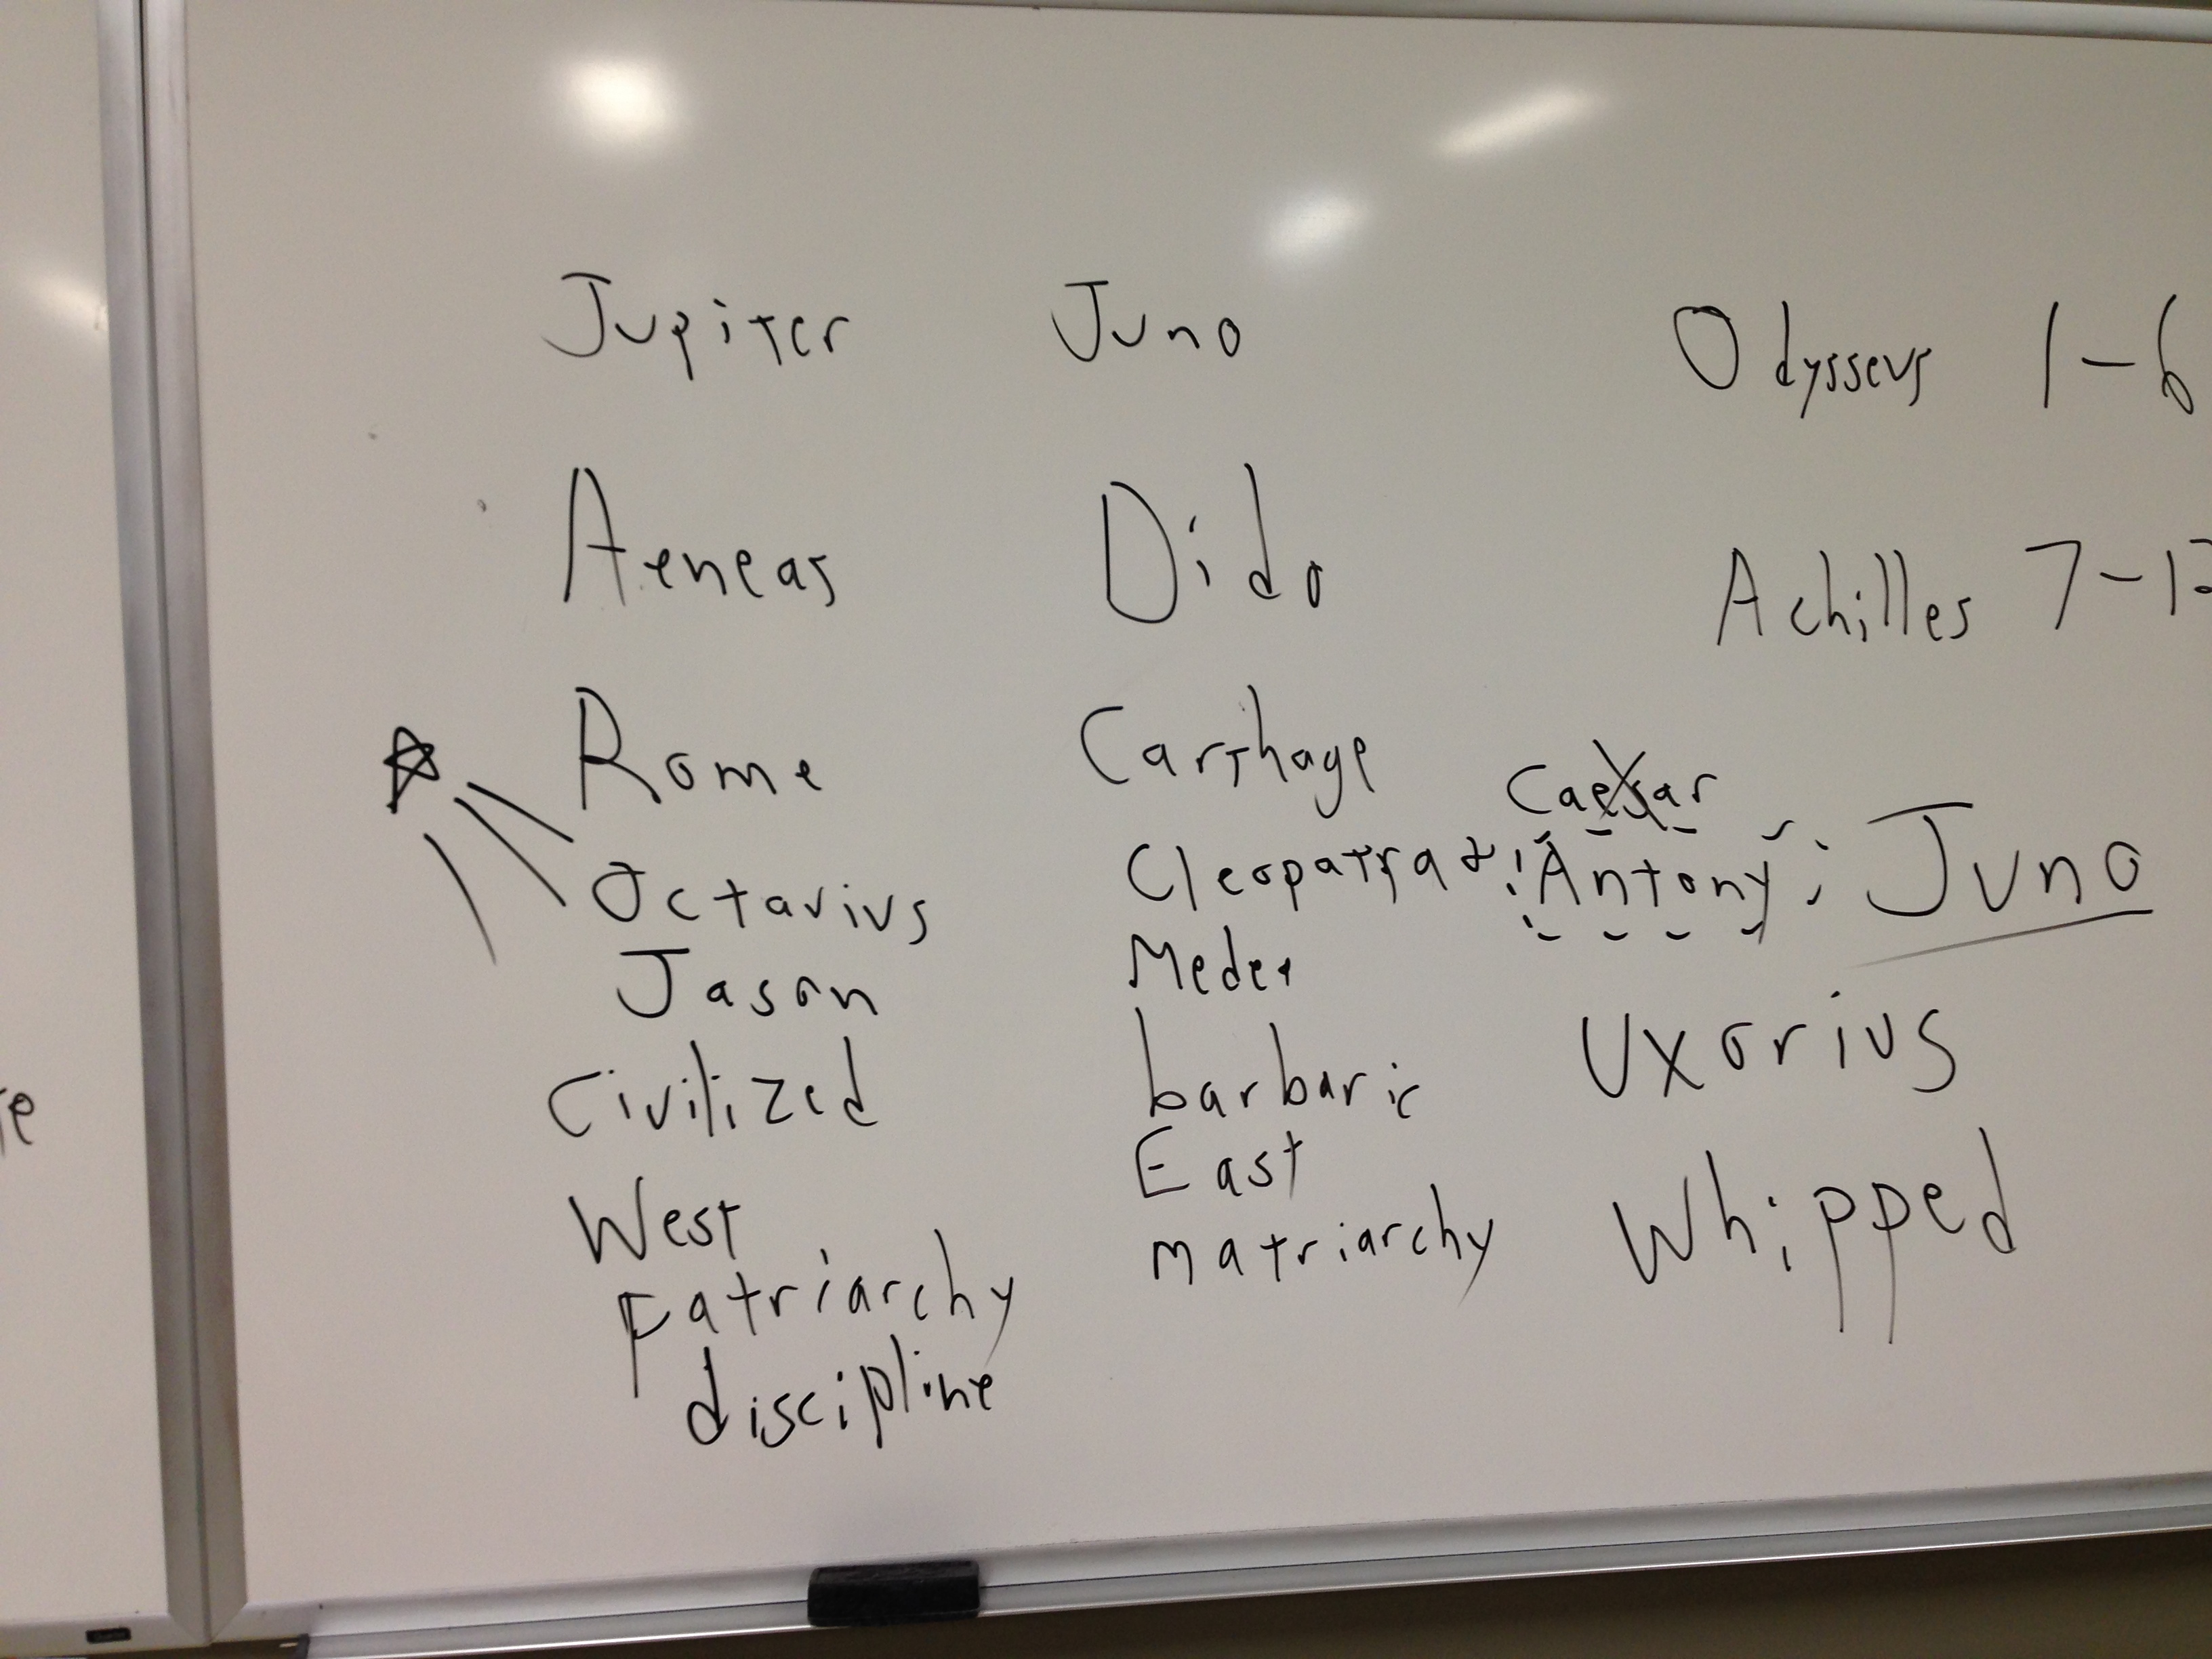 Jupiter Juno Odysseus 1-6
Aeneas Dido Achilles 7-12
Rome Carthage Caesar
Octavius Cleopatra & Antony Juno
Jason Medea
Civilized barbaric Uxorius
West East Whipped
Patriarchy matriarchy
discipline